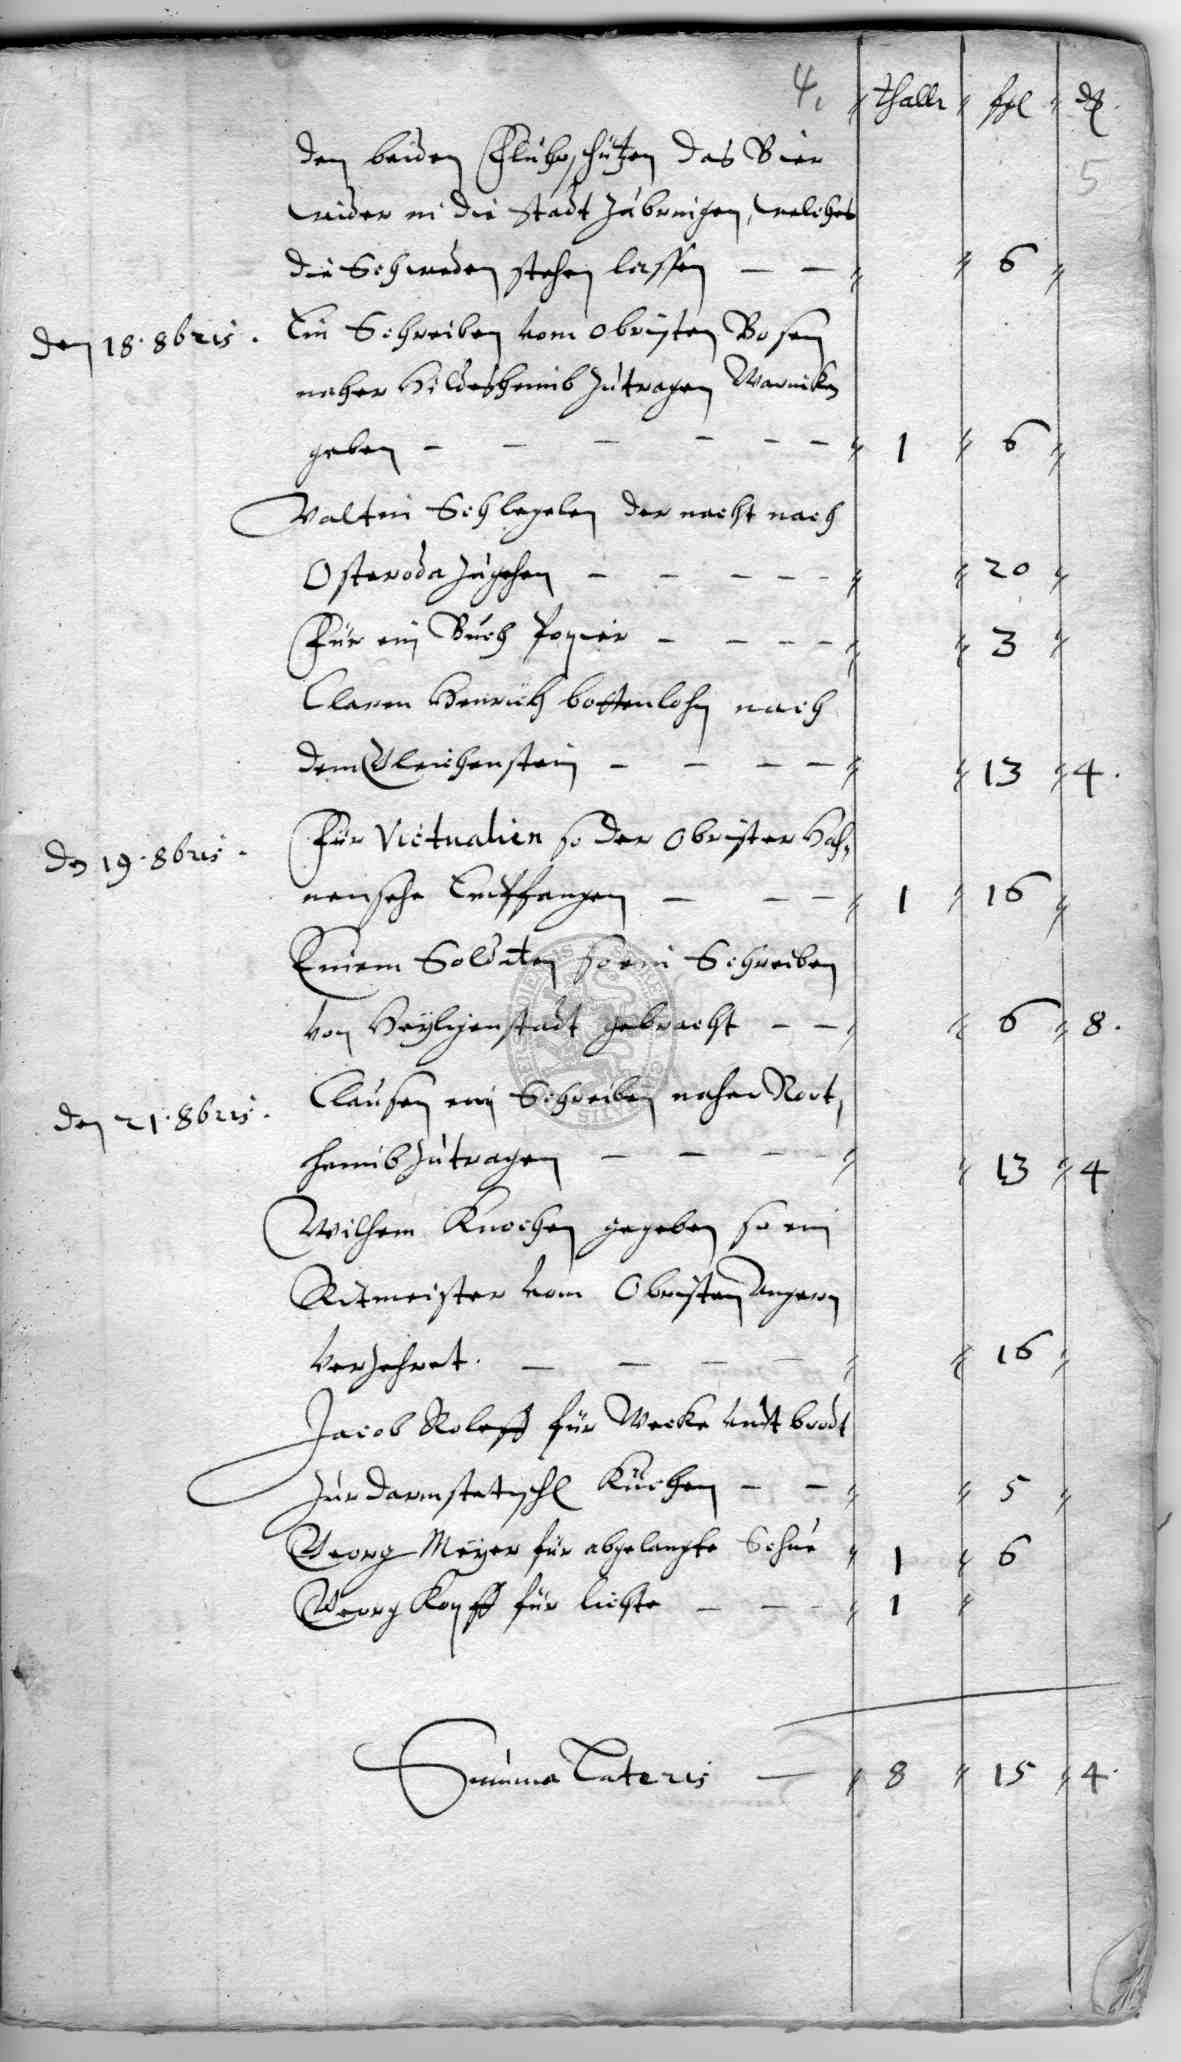 4. thalr ßgl d
5
den beiden Fluhrschützen das Bier
wider in die stadt zubringen, welches
die Schweden stehen lassen — — 6
den 18. 8bris. Ein Schreiben vom Obristen Bosen
naher Hildesheimb zutragen Warnicken
geben — — — — — — 1 6
Valtin Schlegelen der nacht nach
Osteroda zugehen — — — — — 20
Für ein Buch Papier — — — — 3
Claren Henrich bottenlohn nach
dem Gleichenstein — — — — 13 4.
den 19. 8bris. Für Victualien so der Obrister Hah,
nensehe Entpfangen — — — 1 16
Einem Soldaten so ein Schreiben
von Heyligenstadt gebracht — — 6 8.
den 21. 8bris. Clausen ein Schreiben naher Nort,
heimb zutragen — — — — 13 4
Wilhem Knochen gegeben so ein
Ritmeister vom Obristen Ungern
verzehret. — — — — 16
Jacob Roleff für Wecke undt brodt
zur darmstatisch Küchen — — 5
Georg Meyer für abgelangte Schue 1 6
Georg Kopff für lichte — — — 1
Summa Lateris — 8 15 4.